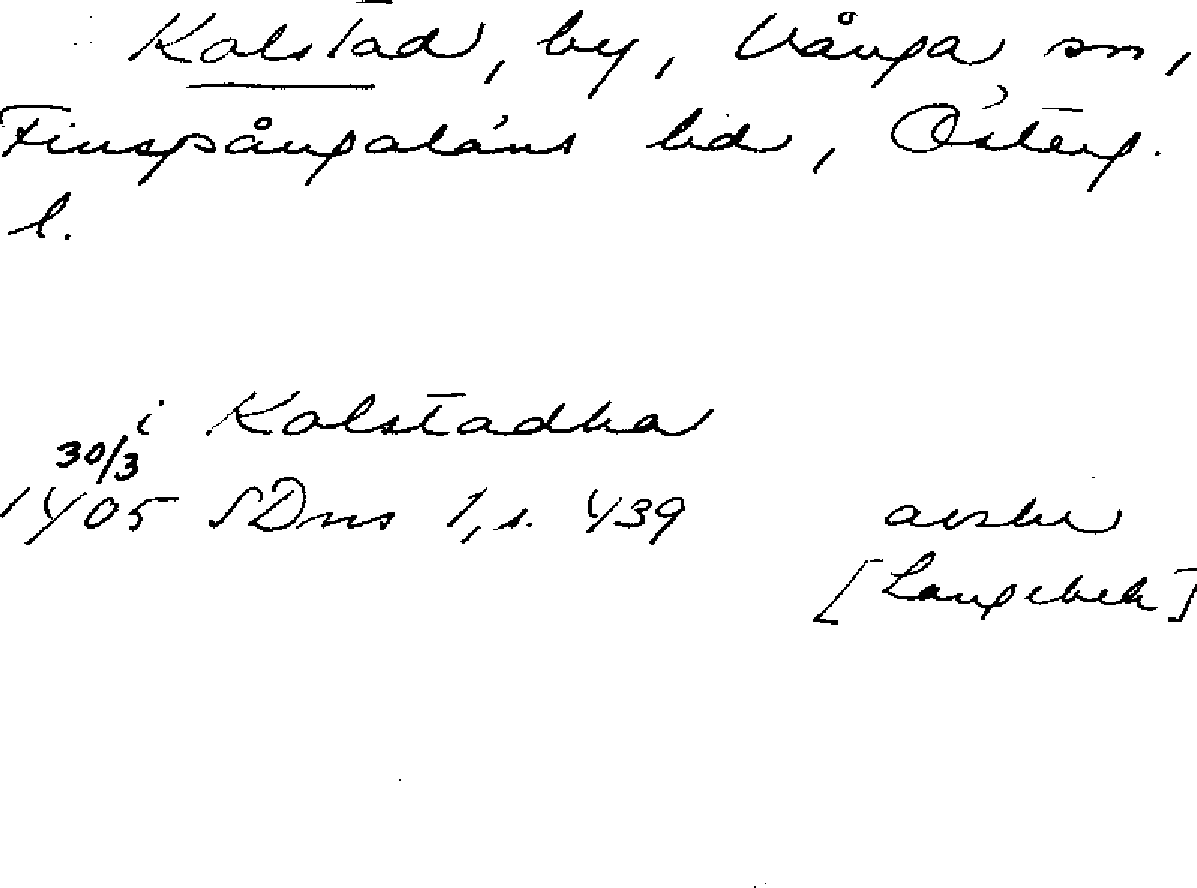 Kolstad, by, Vånga sn,
Finspångaläns hd, Österg.
l.
i Kolstadha
30/3
1405 SDns 1, s. 439 avskr
[Langebek]